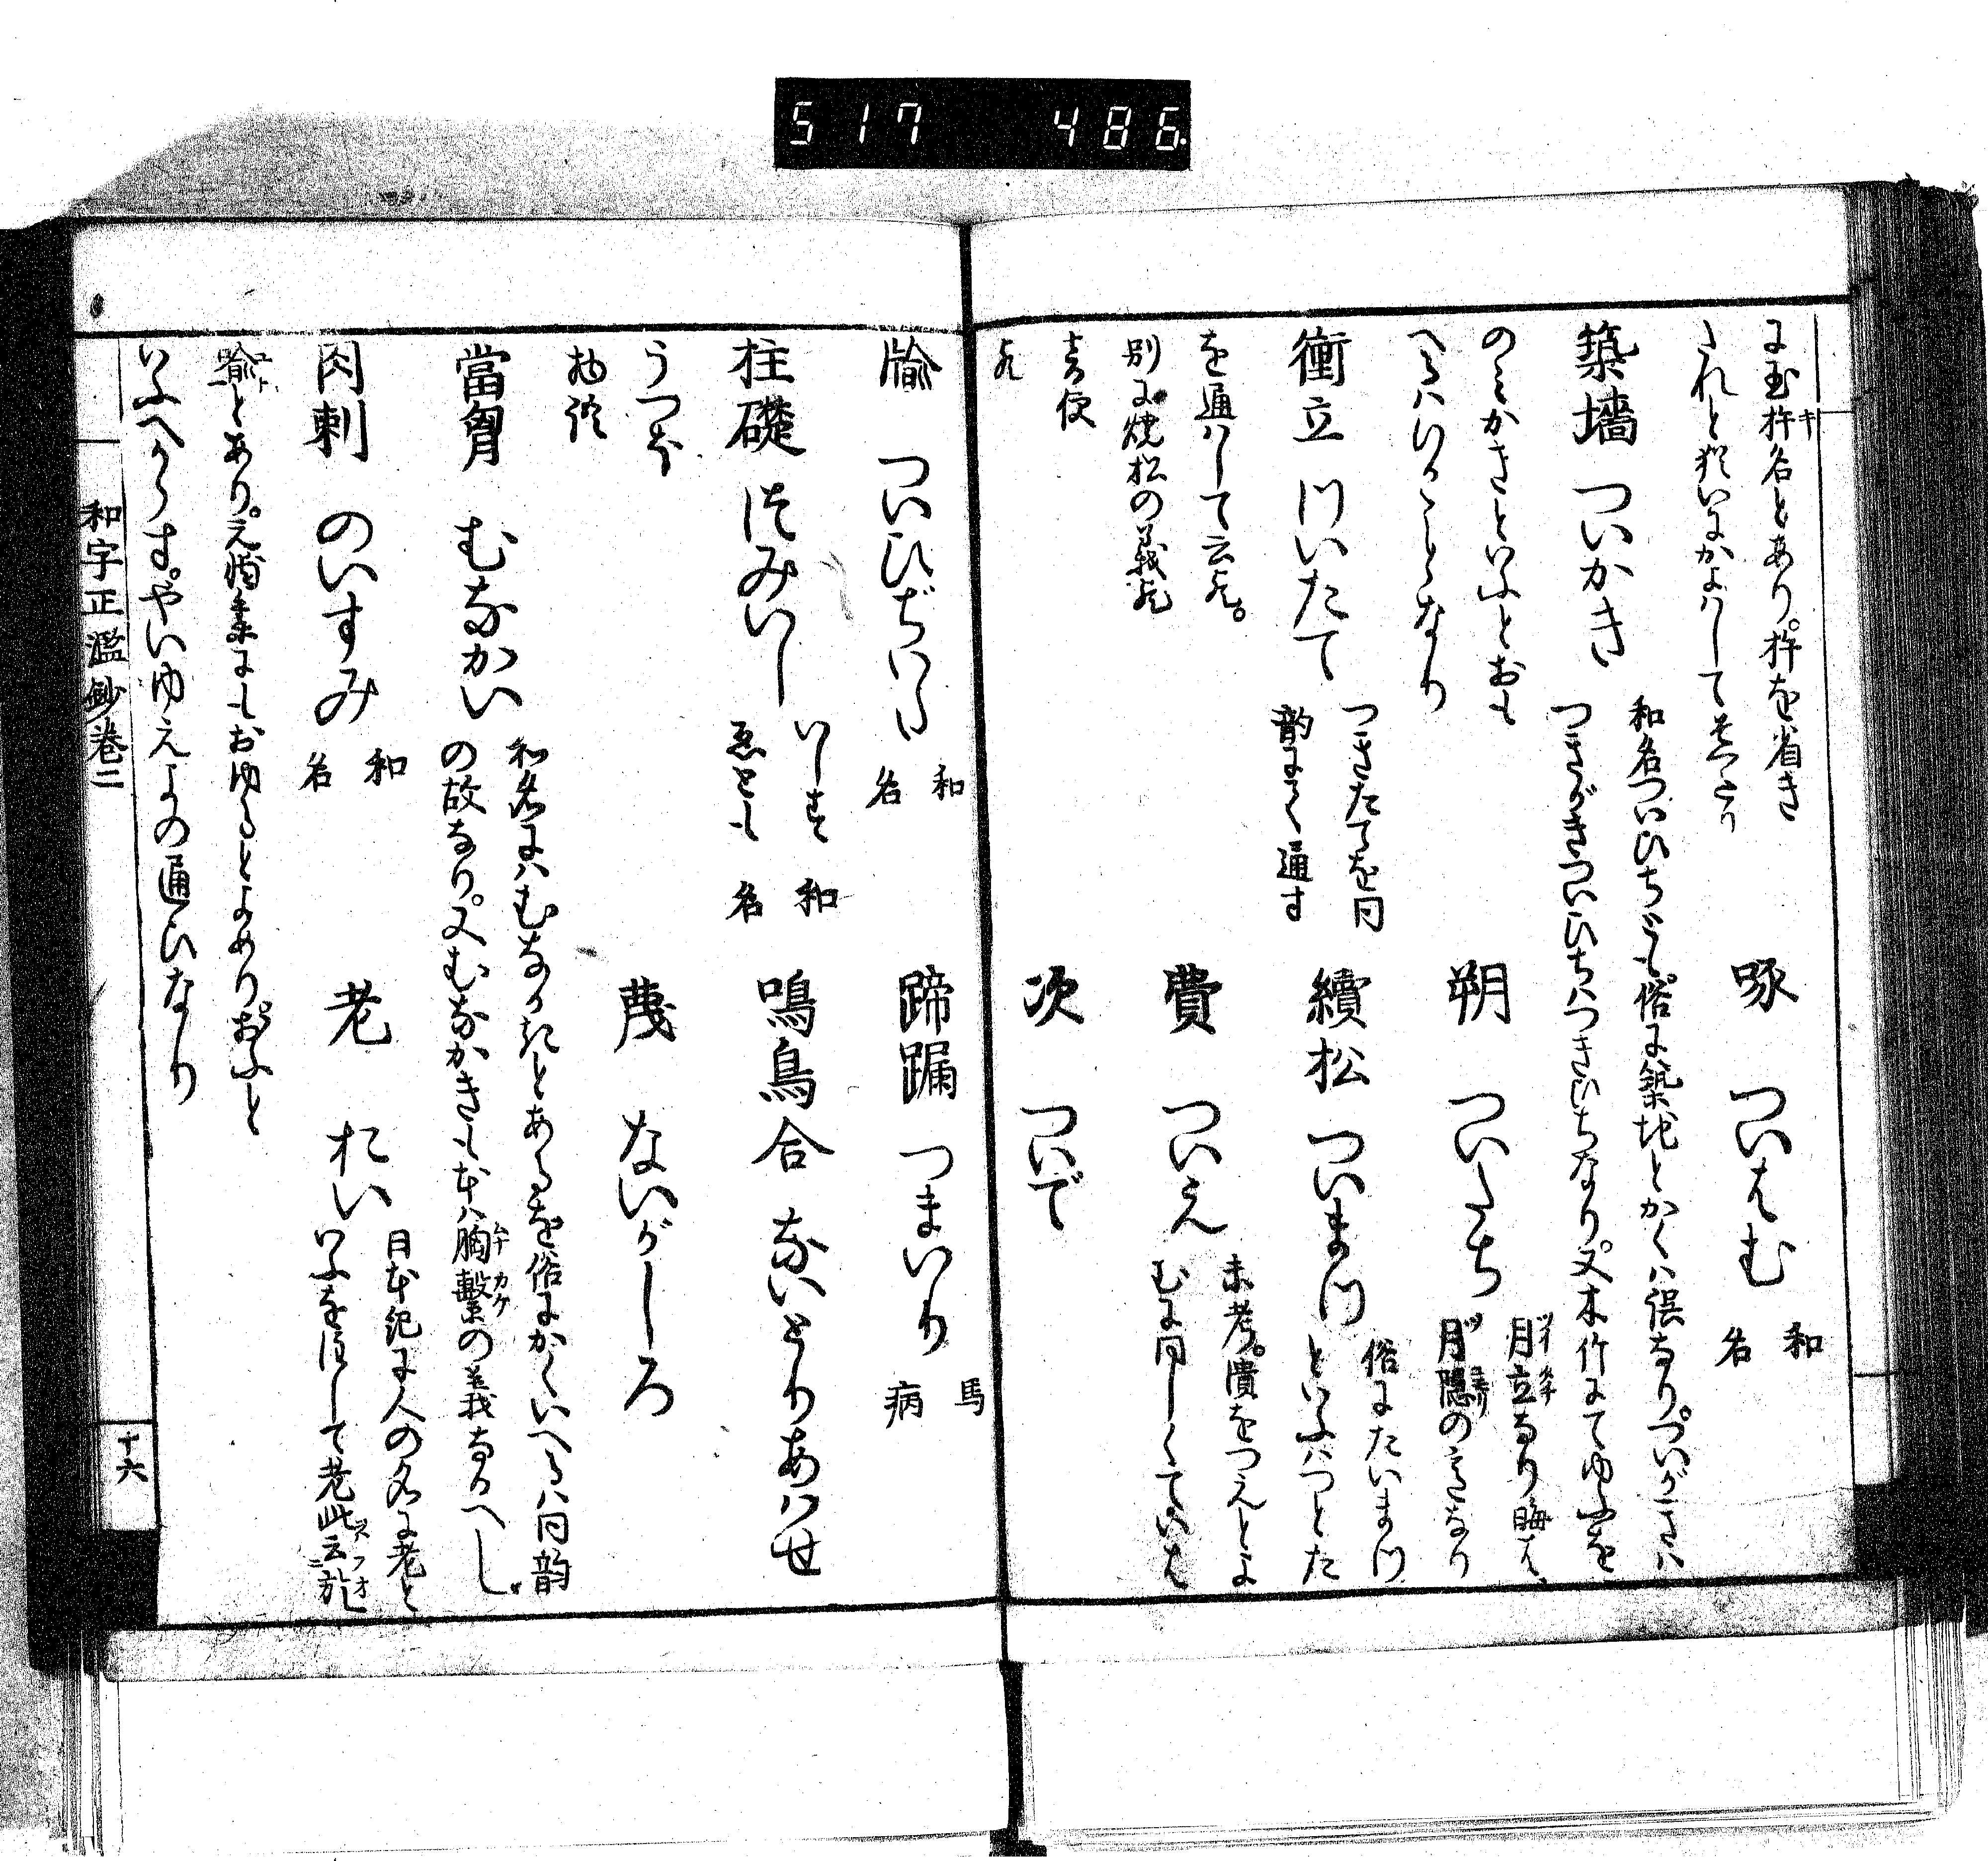 517 486
に玉杵名とあり。杵を省き
されと猶いにかよはしてきたり
啄 ついはむ 和名
築墻 ついかき 和名ついひぢとも。俗に築地とかくは誤なり。ついがきは
つきがきついひちはつきひちなり。又木竹にてゆふを
のみかきといふとおも
へるはひかことなり
朔 ついたち 月立なり晦は
月隠の意なり
衝立 ついたて つきたてを同
韵にて通す
續松 ついまつ 俗にたいまつ
といふはつとた
を通はして云也。
別に焼松の義也
費 ついえ 未考。潰をつえとよ
むに同しくていは
音便
也
次 ついで
牏 ついひぢいた 和名
蹄漏 つまいり 馬病
柱礎 つみいし いしすゑとも 和名
鳴鳥合 ないとりあはせ
うつほ
物語
蔑 ないがしろ
當胷 むなかい 和名にはむなかきとあるを俗にかくいへるは同韵
の故なり。又むなかきも本は胸繫の義なるへし
肉刺 のいすみ 和名
老 おい 日本紀に人の名に老と
いふを注して老此云於
喩とあり。又萬葉にもおゆるとよめり。おふと
いふへからす。やいゆえよの通ひなり
和字正濫鈔巻二
十六